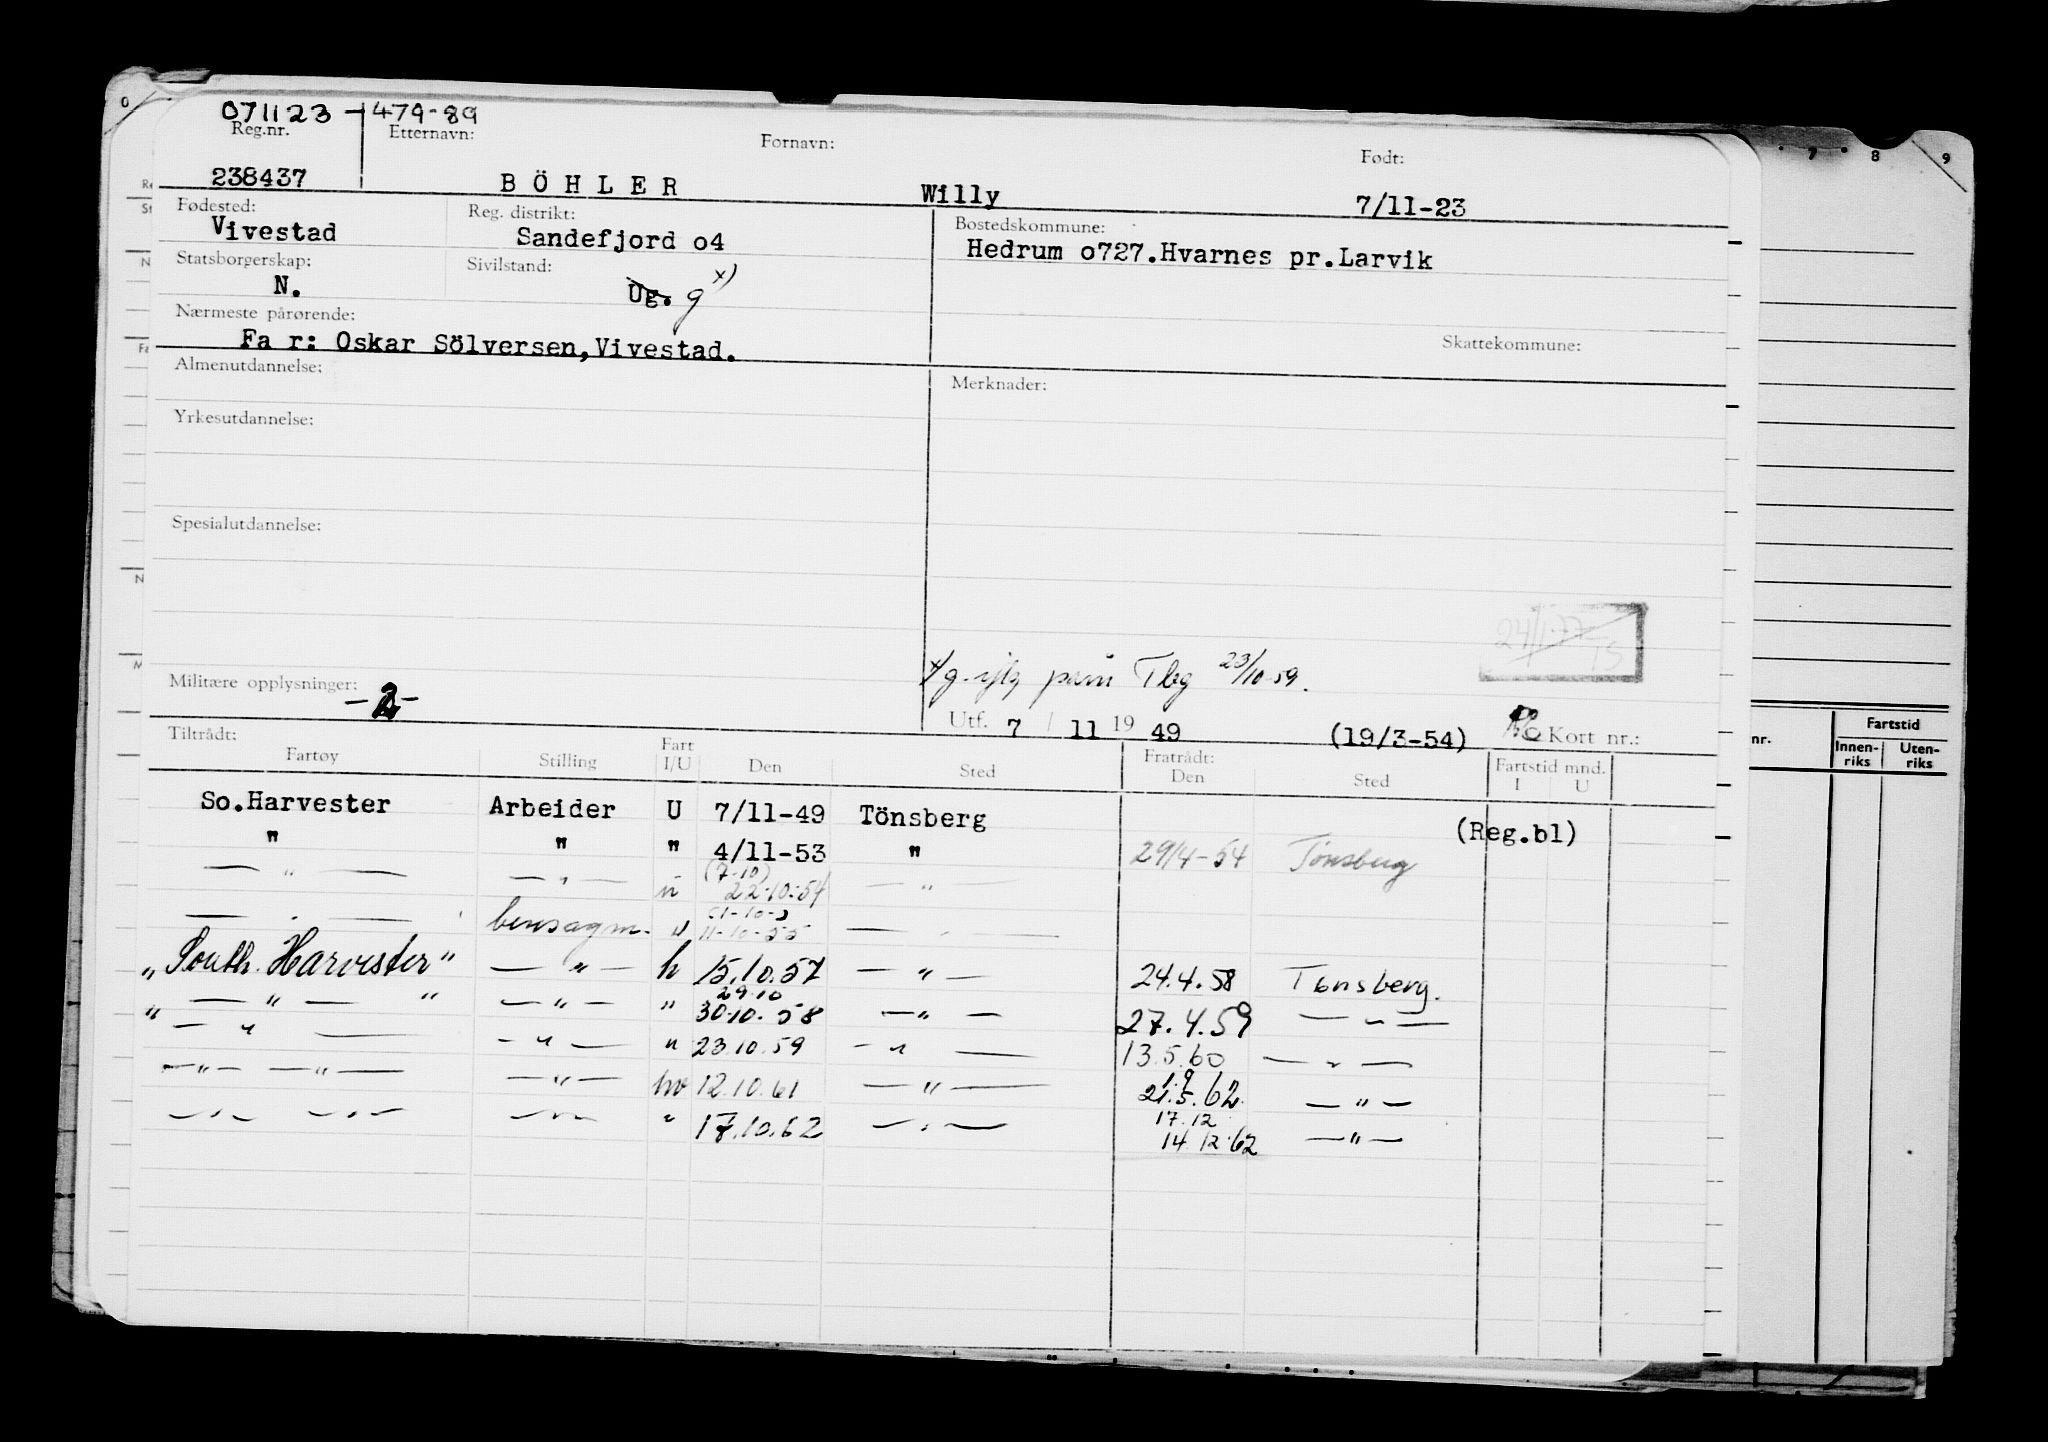 071123-479-89
Reg.nr. Etternavn: Fornavn: Født:
238437 BÖHLER Willy 7/11-23
Fødested: Reg. distrikt: Bostedskommune:
Vivestad Sandefjord o4 Hedrum o727.Hvarnes pr.Larvik
Statsborgerskap: Sivilstand:
N. Ug. g x)
Nærmeste pårørende: Skattekommune:
Fa r: Oskar Sölversen,Vivestad.
Almenutdannelse: Merknader:
Yrkesutdannelse:
Spesialutdannelse:
24/1-77
x/g. iflg Tbg 23/10-59.
Militære opplysninger: -2-
Utf. 7 / 11 19 49 (19/3-54) Kort nr.:
Tiltrådt: Fratrådt: Fartstid mnd.
Fartøy Stilling Fart I/U Den Sted Den Sted I U
So.Harvester Arbeider U 7/11-49 Tönsberg (Reg.bl)
" " " 4/11-53 " 29/4-54 Tønsberg
— " — — " — u (7-10) 22.10.54 — " —
— " — bensagm. " 11-10-55 — " —
"South. Harvester" — " — h 15.10.57 — " — 24.4.58 Tønsberg.
" — " — " — " — " 29.10 30.10.58 — " — 27.4.59 — " —
" — " — — " — " 23.10.59 — " — 13.5.60 — " —
— " — — " — — " — hv 12.10.61 — " — 1.9 21.5.62 — " —
— " — — " — — " — " 17.10.62 — " — 17.12 14.12.62 — " —
0 7 8 9
nr. Fartstid
Innenriks Utenriks